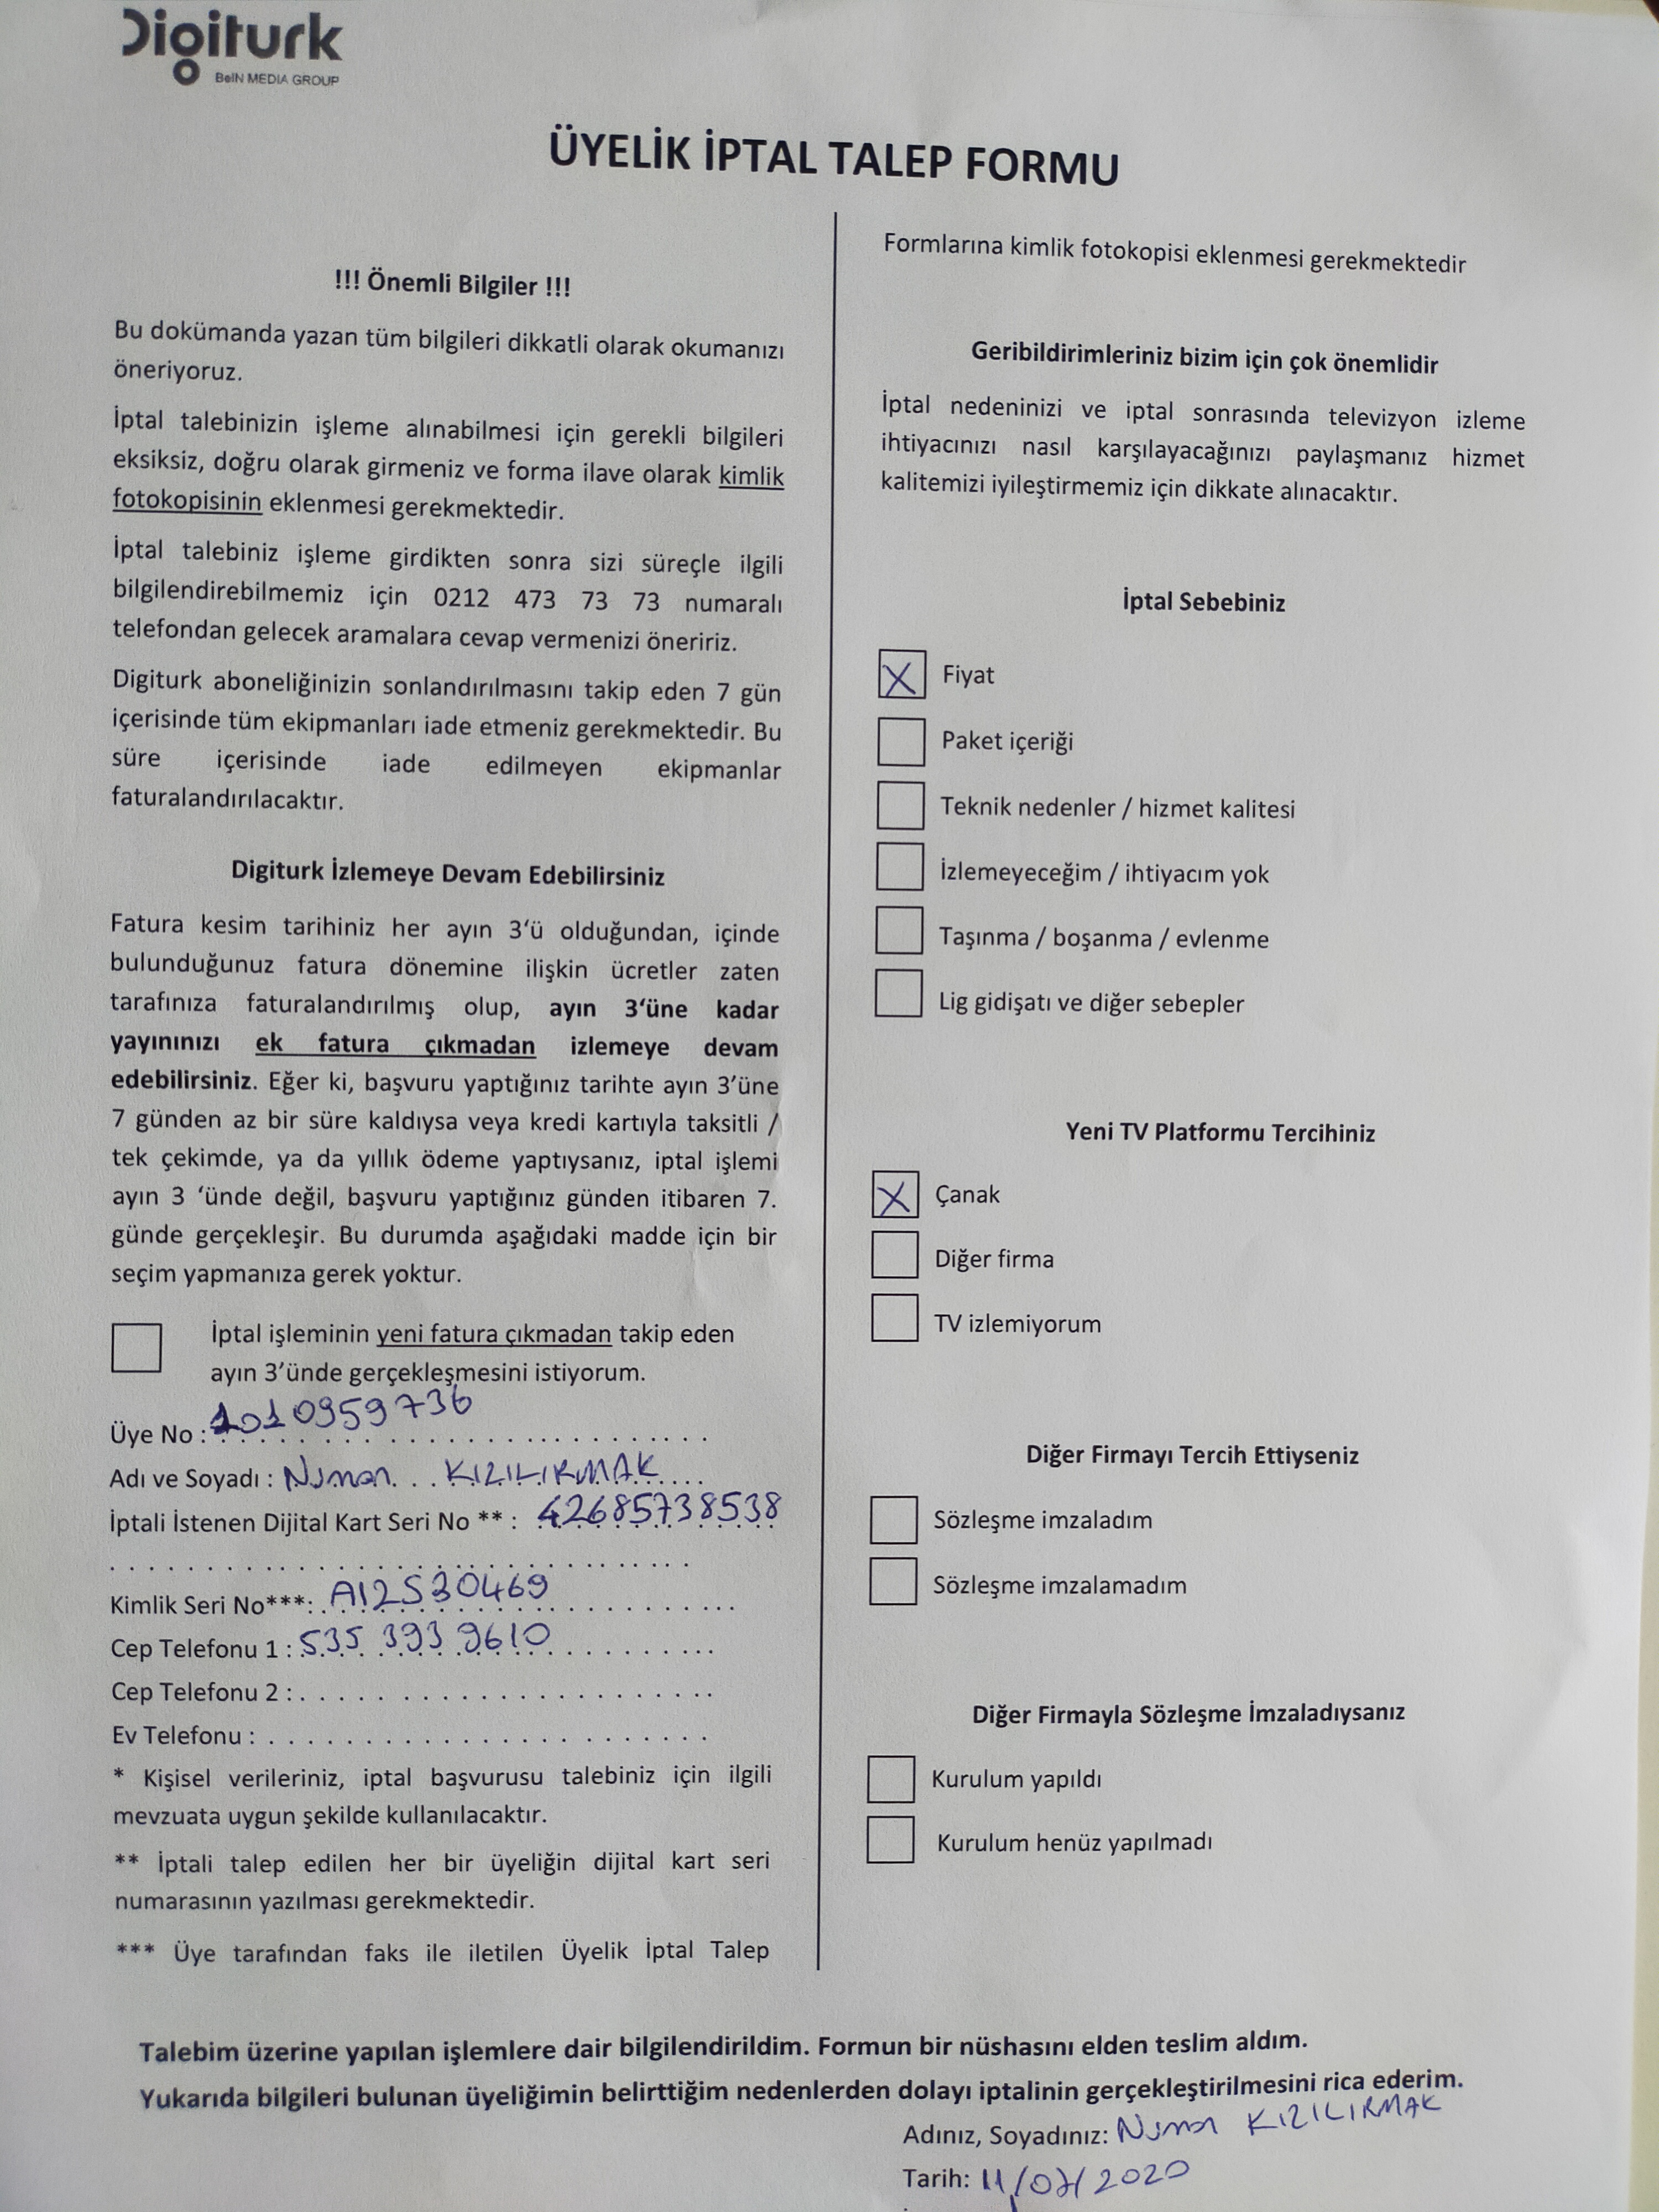 Digiturk
BeIN MEDIA GROUP
ÜYELİK İPTAL TALEP FORMU
!!! Önemli Bilgiler !!!
Bu dokümanda yazan tüm bilgileri dikkatli olarak okumanızı
öneriyoruz.
İptal talebinizin işleme alınabilmesi için gerekli bilgileri
eksiksiz, doğru olarak girmeniz ve forma ilave olarak kimlik
fotokopisinin eklenmesi gerekmektedir.
İptal talebiniz işleme girdikten sonra sizi süreçle ilgili
bilgilendirebilmemiz için 0212 473 73 73 numaralı
telefondan gelecek aramalara cevap vermenizi öneririz.
Digiturk aboneliğinizin sonlandırılmasını takip eden 7 gün
içerisinde tüm ekipmanları iade etmeniz gerekmektedir. Bu
süre içerisinde iade edilmeyen ekipmanlar
faturalandırılacaktır.
Digiturk İzlemeye Devam Edebilirsiniz
Fatura kesim tarihiniz her ayın 3‘ü olduğundan, içinde
bulunduğunuz fatura dönemine ilişkin ücretler zaten
tarafınıza faturalandırılmış olup, ayın 3‘üne kadar
yayınınızı ek fatura çıkmadan izlemeye devam
edebilirsiniz. Eğer ki, başvuru yaptığınız tarihte ayın 3’üne
7 günden az bir süre kaldıysa veya kredi kartıyla taksitli /
tek çekimde, ya da yıllık ödeme yaptıysanız, iptal işlemi
ayın 3 ‘ünde değil, başvuru yaptığınız günden itibaren 7.
günde gerçekleşir. Bu durumda aşağıdaki madde için bir
seçim yapmanıza gerek yoktur.
İptal işleminin yeni fatura çıkmadan takip eden
ayın 3’ünde gerçekleşmesini istiyorum.
Üye No : 1010959736
Adı ve Soyadı : Numan KIZILIRMAK
İptali İstenen Dijital Kart Seri No ** : 42685738538
Kimlik Seri No***: A12S30469
Cep Telefonu 1 : 535 393 9610
Cep Telefonu 2 :
Ev Telefonu :
* Kişisel verileriniz, iptal başvurusu talebiniz için ilgili
mevzuata uygun şekilde kullanılacaktır.
** İptali talep edilen her bir üyeliğin dijital kart seri
numarasının yazılması gerekmektedir.
*** Üye tarafından faks ile iletilen Üyelik İptal Talep
Formlarına kimlik fotokopisi eklenmesi gerekmektedir
Geribildirimleriniz bizim için çok önemlidir
İptal nedeninizi ve iptal sonrasında televizyon izleme
ihtiyacınızı nasıl karşılayacağınızı paylaşmanız hizmet
kalitemizi iyileştirmemiz için dikkate alınacaktır.
İptal Sebebiniz
X Fiyat
Paket içeriği
Teknik nedenler / hizmet kalitesi
İzlemeyeceğim / ihtiyacım yok
Taşınma / boşanma / evlenme
Lig gidişatı ve diğer sebepler
Yeni TV Platformu Tercihiniz
X Çanak
Diğer firma
TV izlemiyorum
Diğer Firmayı Tercih Ettiyseniz
Sözleşme imzaladım
Sözleşme imzalamadım
Diğer Firmayla Sözleşme İmzaladıysanız
Kurulum yapıldı
Kurulum henüz yapılmadı
Talebim üzerine yapılan işlemlere dair bilgilendirildim. Formun bir nüshasını elden teslim aldım.
Yukarıda bilgileri bulunan üyeliğimin belirttiğim nedenlerden dolayı iptalinin gerçekleştirilmesini rica ederim.
Adınız, Soyadınız: Numan KIZILIRMAK
Tarih: 11/07/2020